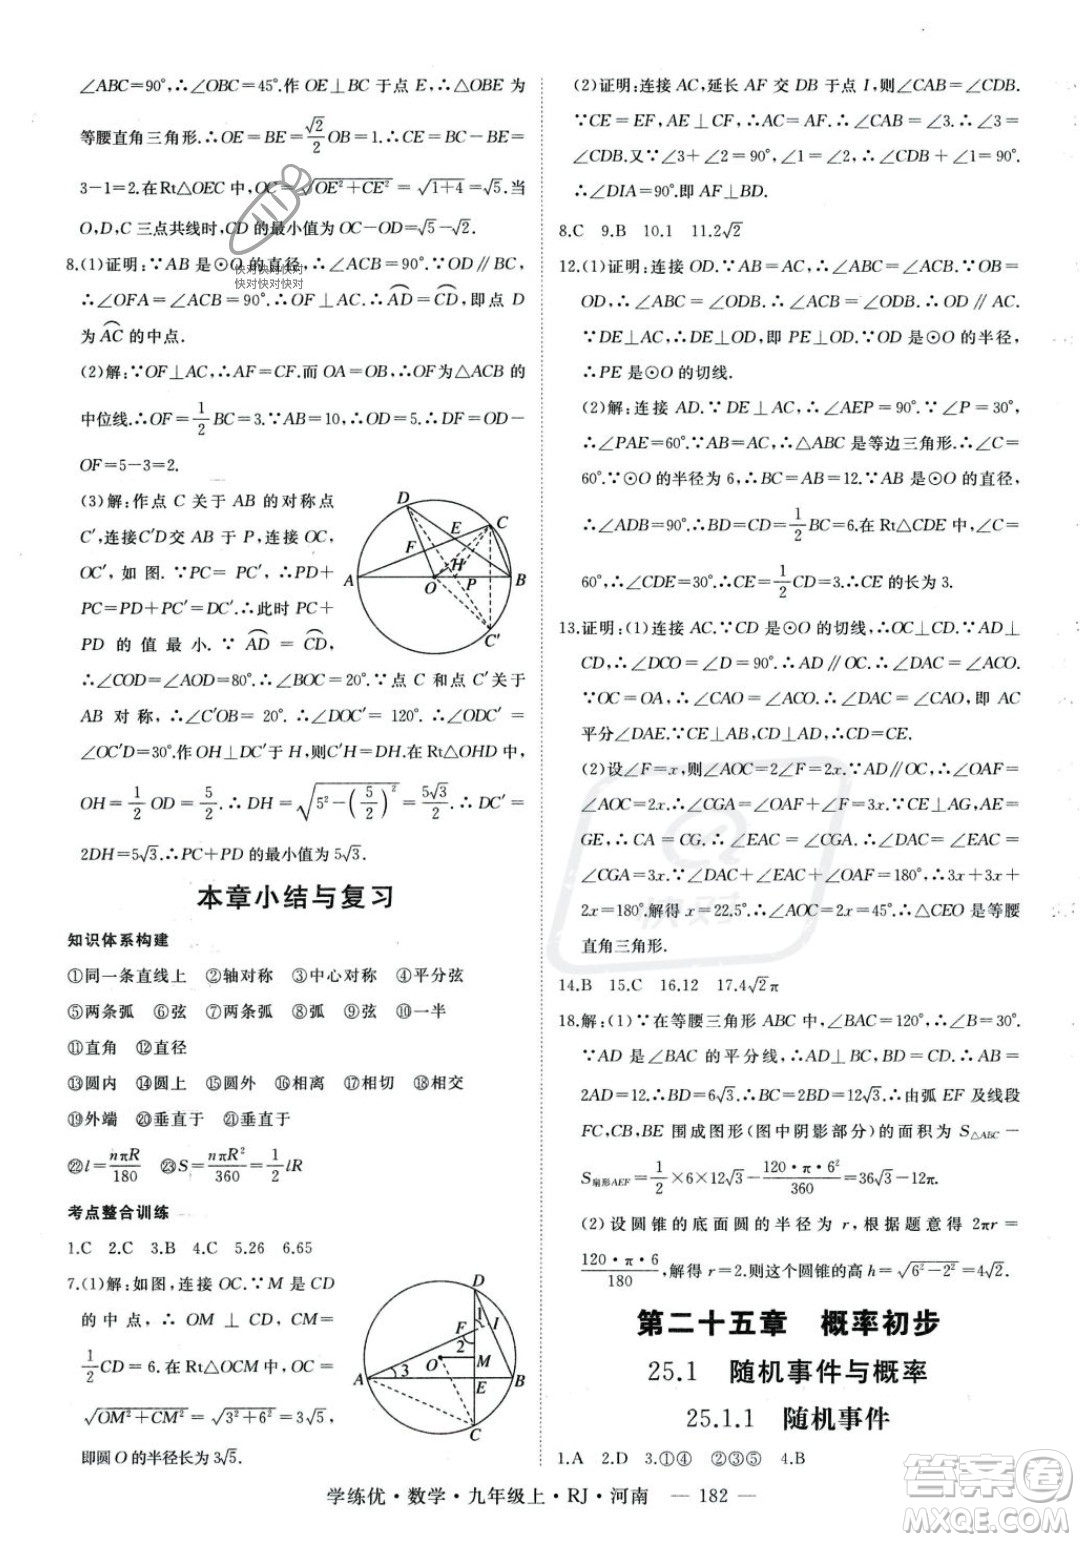 ∠ABC=90°.∴∠OBC=45°.作 OE⊥BC于点E,∴△OBE为
等腰直角三角形.∴OE=BE=√2/2 OB=1.∴CE=BC-BE=
3-1=2.在Rt△OEC中,OC=√(OE²+CE²)=√(1+4)=√5.当
O,D,C三点共线时,CD的最小值为OC-OD=√5-√2.
8.(1)证明:∵AB是⊙O的直径,∴∠ACB=90°.∵OD∥BC,
∴∠OFA=∠ACB=90°.∴OF⊥AC.∴⌒AD=⌒CD,即点D
为⌒AC的中点.
(2)解:∵OF⊥AC,∴AF=CF.而OA=OB,∴OF为△ACB的
中位线.∴OF=1/2 BC=3.∵AB=10,∴OD=5.∴DF=OD-
OF=5-3=2.
(3)解:作点C关于AB的对称点
C′,连接C′D交AB于P,连接OC,
OC′,如图.∵PC=PC′,∴PD+
PC=PD+PC′=DC′.∴此时PC+
PD的值最小.∵⌒AD=⌒CD,
∴∠COD=∠AOD=80°.∴∠BOC=20°.∵点C和点C′关于
AB对称,∴∠C′OB=20°.∴∠DOC′=120°.∴∠ODC′=
∠OC′D=30°.作OH⊥DC′于H,则C′H=DH.在Rt△OHD中,
OH=1/2 OD=5/2.∴DH=√(5²-(5/2)²)=5√3/2.∴DC′=
2DH=5√3.∴PC+PD的最小值为5√3.
D
E
C
F
H
A
O
P
B
C′
本章小结与复习
知识体系构建
①同一条直线上 ②轴对称 ③中心对称 ④平分弦
⑤两条弧 ⑥弦 ⑦两条弧 ⑧弧 ⑨弦 ⑩一半
⑪直角 ⑫直径
⑬圆内 ⑭圆上 ⑮圆外 ⑯相离 ⑰相切 ⑱相交
⑲外端 ⑳垂直于 ㉑垂直于
㉒l=nπR/180 ㉓S=nπR²/360=1/2 lR
考点整合训练
1.C 2.C 3.B 4.C 5.26 6.65
7.(1)解:如图,连接OC.∵M是CD
的中点,∴OM⊥CD,CM=
1/2 CD=6.在Rt△OCM中,OC=
√(OM²+CM²)=√(3²+6²)=3√5,
即圆O的半径长为3√5.
D
1
F
I
2
O
M
3
A
E
B
C
(2)证明:连接AC,延长AF交DB于点I,则∠CAB=∠CDB.
∵CE=EF,AE⊥CF,∴AC=AF.∴∠CAB=∠3.∴∠3=
∠CDB.又∵∠3+∠2=90°,∠1=∠2,∴∠CDB+∠1=90°.
∴∠DIA=90°.即AF⊥BD.
8.C 9.B 10.1 11.2√2
12.(1)证明:连接OD.∵AB=AC,∴∠ABC=∠ACB.∵OB=
OD,∴∠ABC=∠ODB.∴∠ACB=∠ODB.∴OD∥AC.
∵DE⊥AC,∴DE⊥OD,即PE⊥OD.∵OD是⊙O的半径,
∴PE是⊙O的切线.
(2)解:连接AD.∵DE⊥AC,∴∠AEP=90°.∵∠P=30°,
∴∠PAE=60°.∵AB=AC,∴△ABC是等边三角形.∴∠C=
60°.∵⊙O的半径为6,∴BC=AB=12.∵AB是⊙O的直径,
∴∠ADB=90°.∴BD=CD=1/2 BC=6.在Rt△CDE中,∠C=
60°,∴∠CDE=30°.∴CE=1/2 CD=3.∴CE的长为3.
13.证明:(1)连接AC.∵CD是⊙O的切线,∴OC⊥CD.∵AD⊥
CD,∴∠DCO=∠D=90°.∴AD∥OC.∴∠DAC=∠ACO.
∵OC=OA,∴∠CAO=∠ACO.∴∠DAC=∠CAO,即AC
平分∠DAE.∵CE⊥AB,CD⊥AD,∴CD=CE.
(2)设∠F=x,则∠AOC=2∠F=2x.∵AD∥OC,∴∠OAF=
∠AOC=2x.∴∠CGA=∠OAF+∠F=3x.∵CE⊥AG,AE=
GE,∴CA=CG.∴∠EAC=∠CGA=3x.∴∠DAC=∠EAC=
∠CGA=3x.∵∠DAC+∠EAC+∠OAF=180°,∴3x+3x+
2x=180°.解得x=22.5°.∴∠AOC=2x=45°.∴△CEO是等腰
直角三角形.
14.B 15.C 16.12 17.4√2π
18.解:(1)∵在等腰三角形ABC中,∠BAC=120°,∴∠B=30°.
∵AD是∠BAC的平分线,∴AD⊥BC,BD=CD.∴AB=
2AD=12.∴BD=6√3.∴BC=2BD=12√3.∴由弧EF及线段
FC,CB,BE围成图形(图中阴影部分)的面积为S△ABC-
S扇形AEF=1/2×6×12√3-120·π·6²/360=36√3-12π.
(2)设圆锥的底面圆的半径为r,根据题意得2πr=
120·π·6/180,解得r=2.则这个圆锥的高h=√(6²-2²)=4√2.
第二十五章 概率初步
25.1 随机事件与概率
25.1.1 随机事件
1.A 2.D 3.①④ ②③⑤ 4.B
学练优·数学·九年级上·RJ·河南 — 182 —
快对快对快对
快对快对快对
快对
答案圈
MXQE.COM